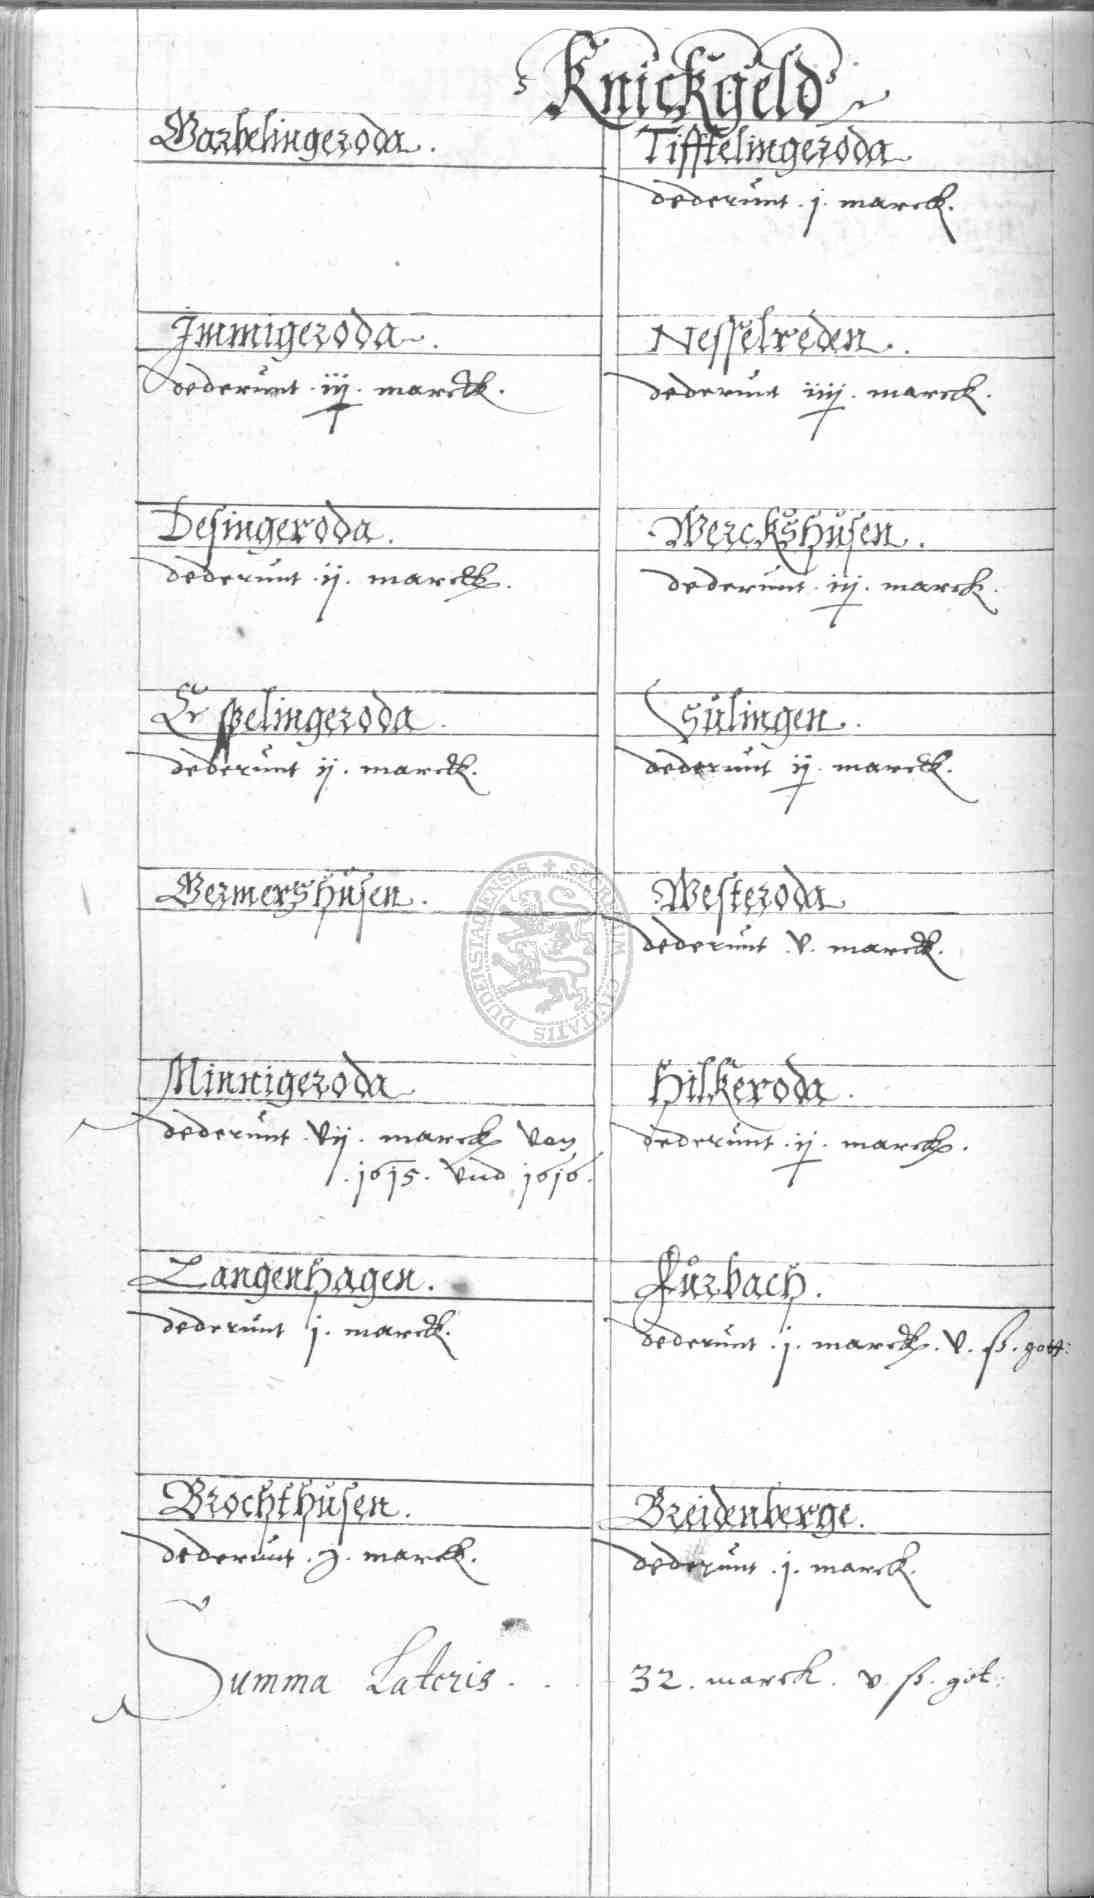 Knickgeld
Garbelingeroda.
Tifftelingeroda
dederunt . j . marck.
Immigeroda.
Nesselreden.
dederunt . iij . marck.
dederunt iiij . marck.
Desingeroda.
Werckshusen.
dederunt . ij . marck.
dederunt . iij . marck.
Espelingeroda.
Sülingen.
dederunt ij . marck.
dederunt ij . marck.
Germershusen.
Westeroda
dederunt . v . marck.
Minnigeroda
Hilkeroda.
dederunt . vij . marck von
. 1615 . vnd 1616.
dederunt . ij . marck.
Langenhagen.
Furbach.
dederunt j . marck.
dederunt . j . marck . v . ß . gott:
Brochthusen.
Breidenberge.
dederunt . j . marck.
dederunt . j . marck.
Summa Lateris . . . 32 . marck . v . ß . got:
SECRETUM CIVITATIS DUDERSTADENSIS